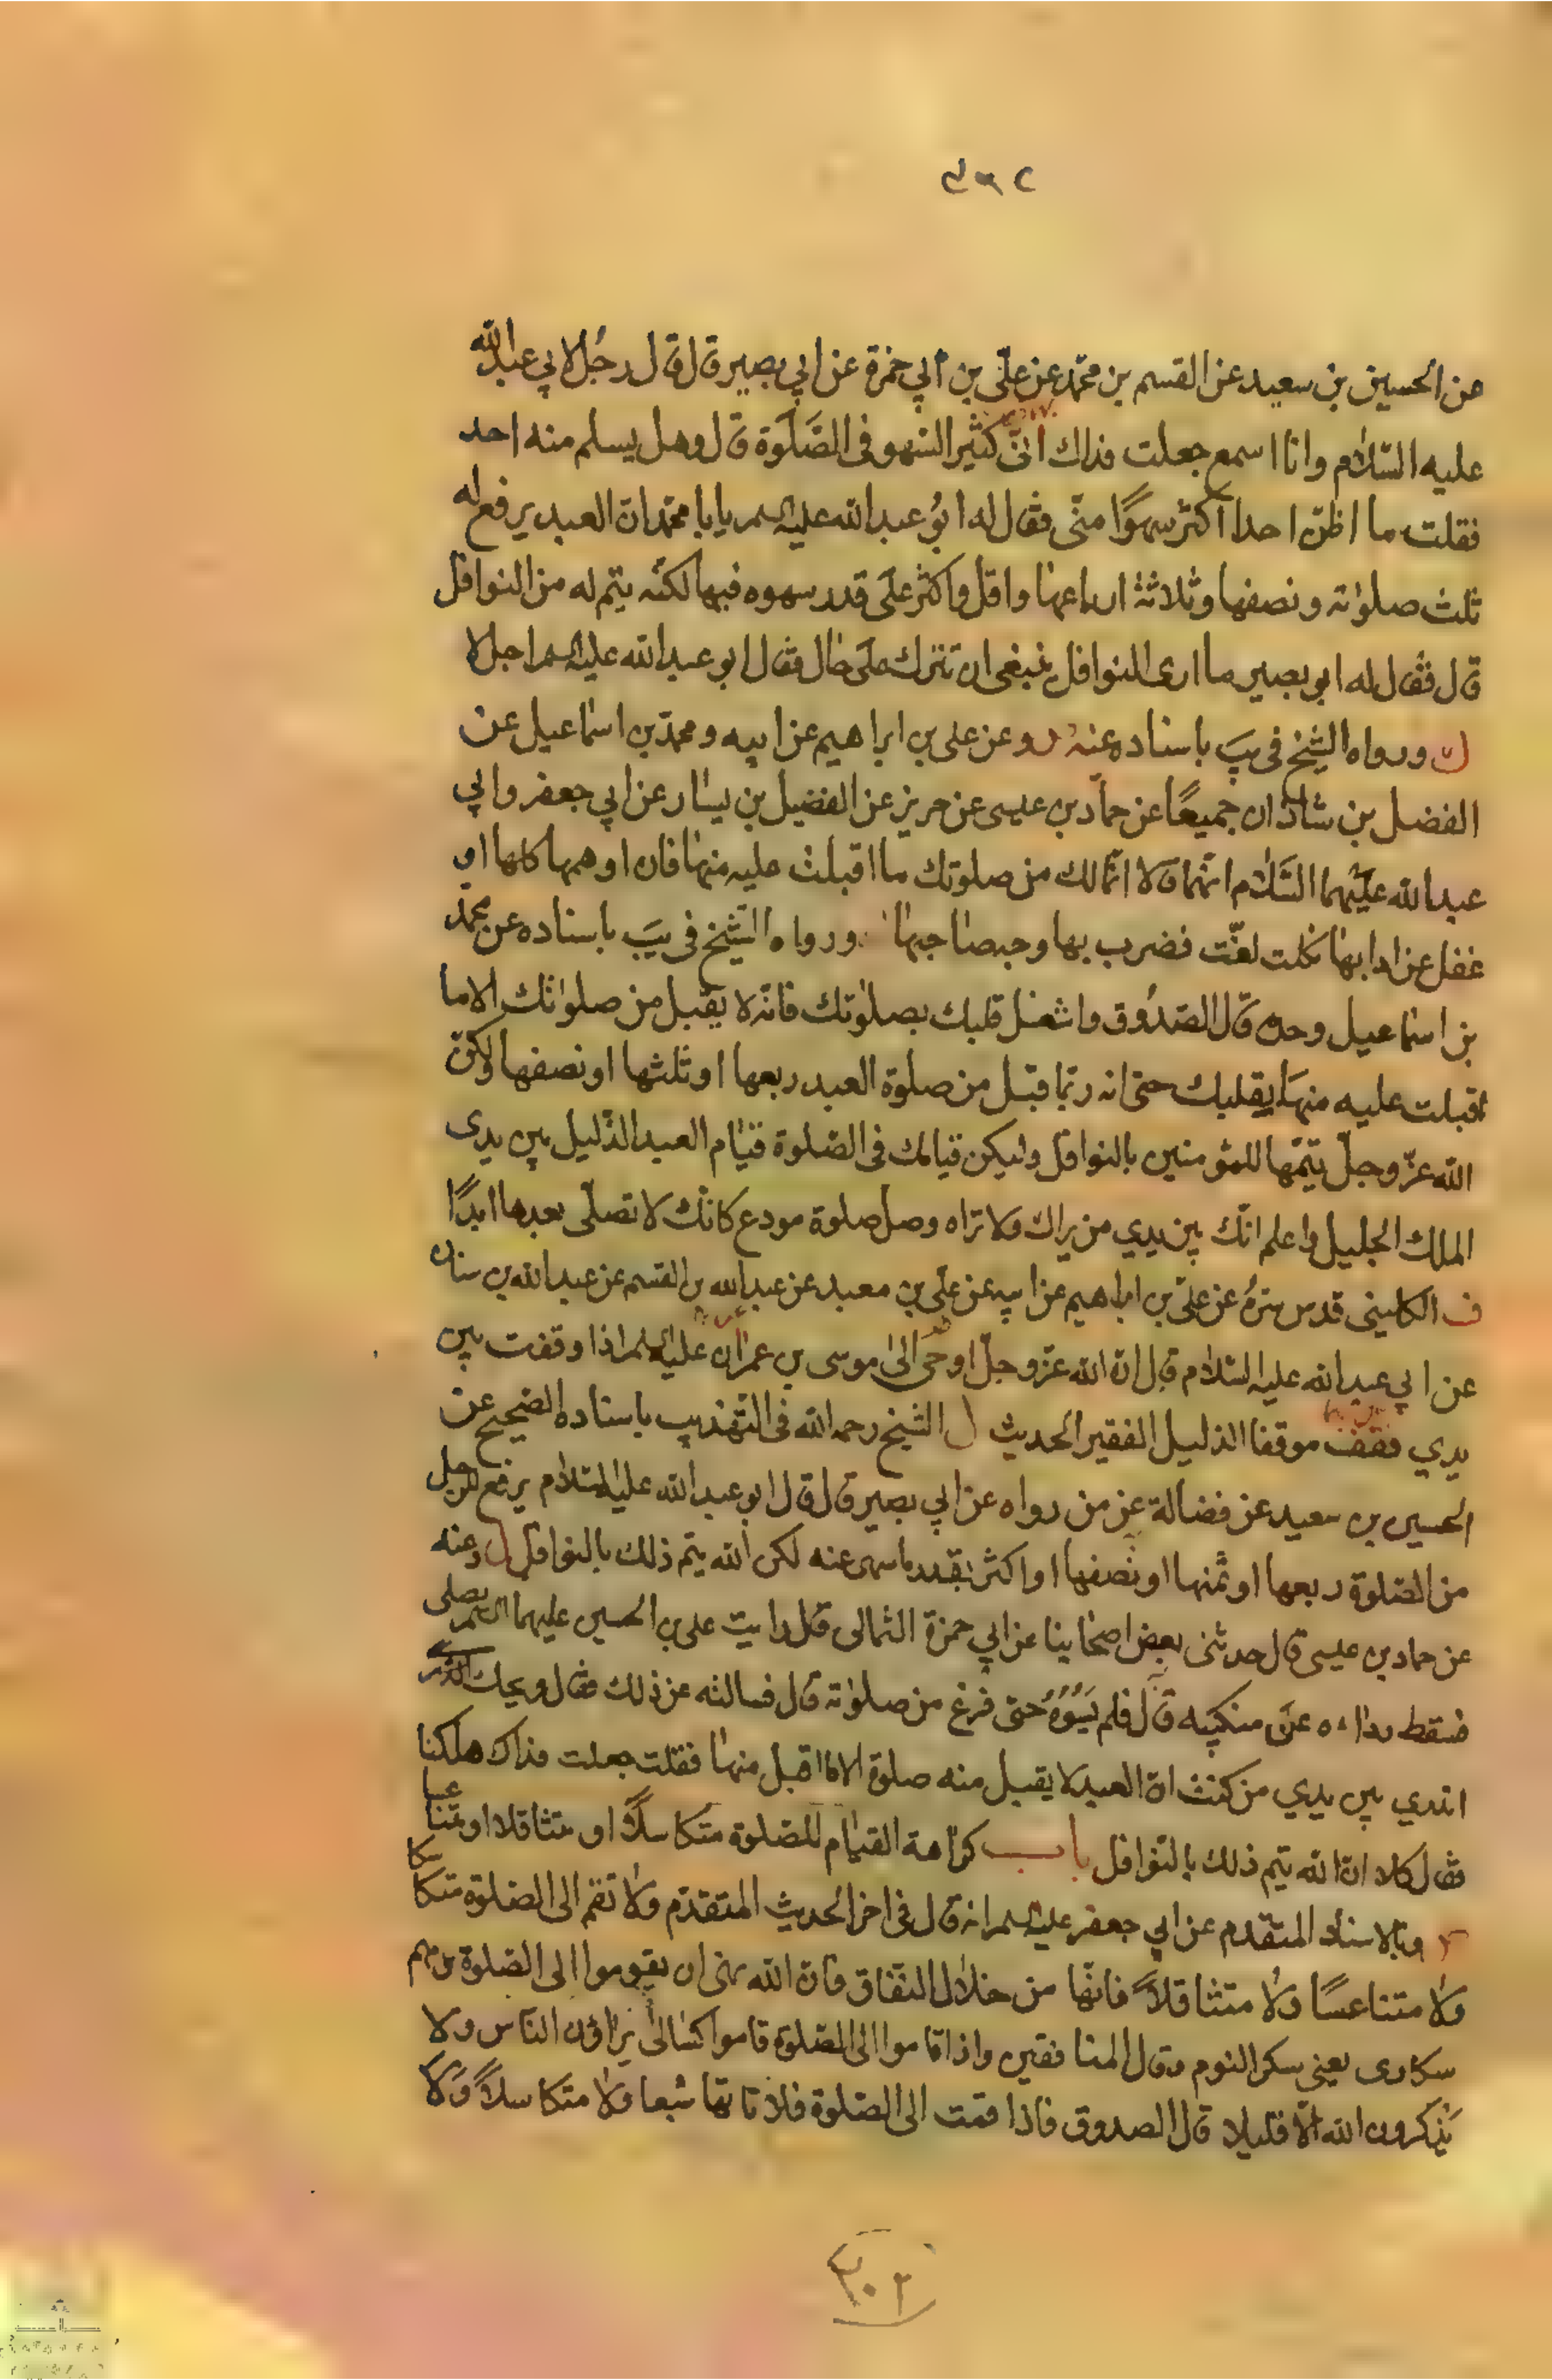 عن الحسين بن سعيد عن القسم بن محمّد عن علّى بن ابي حمزة عن ابي بصير قال قال رجُل لابي عبدالله
عليه السّلام وانا اسمع جعلت فداك انّى كثير السّهو فى الصّلوة قال وهل يسلم منه احد
فقلت ما اظنّ احدا اكثر سهوًا منّى فقال له ابُو عبدالله عليه السلم يا با محمّد ان العبد يرفع له
ثلث صلوٰته ونصفها وثلاثة ارباعها واقل واكثر على قدر سهوه فيها لكنّه يتم له من النوافل
قال فقال له ابو بصير ما ارى النوافل ينبغى ان تترك على حال فقال ابو عبدالله عليه السلم اجل لا
ورواه الشيخ فى يب باسناده عنه وعن على بن ابراهيم عن ابيه ومحمّد بن اسماعيل عن
الفضل بن شاذان جميعًا عن حمّاد بن عيسى عن حريز عن الفضيل بن يسار عن ابي جعفر وابي
عبدالله عليهما السّلام انّهما قالا انّما لك من صلوتك ما اقبلت عليه منها فان اوهمها كلها او
غفل عن ادابها لفّت فضرب بها وجه صاحبها ورواه الشّيخ فى يب باسناده عن محمّد
بن اسماعيل وحده قال الصّدُوق واشغل قلبك بصلوٰتك فانّه لا يقبل من صلواتك الا ما
اقبلت عليه منها بقلبك حتى انه ربّما قبل من صلوة العبد ربعها او ثلثها او نصفها ولكنّ
الله عزّ وجلّ يتمّها للمؤمنين بالنوافل وليكن قيامك فى الصّلوة قيام العبد الذّليل بين يدى
الملك الجليل واعلم انّك بين يدي من يراك ولا تراه وصل صلوة مودع كانّك لا تصلّى بعدها ابدًا
ف الكلينى قدس سرّهُ عن علىّ بن ابراهيم عن ابيه عن علىّ بن معبد عن عبدالله بن القسم عن عبدالله بن سنان
عن ابي عبدالله عليه السّلام قال انّ الله عزّ وجلّ اوحى الى موسى بن عمران عليه السلم اذا وقفت بين
يدي فقف موقف الذليل الفقير الحديث ل الشّيخ رحمه الله فى التّهذيب باسناده الصّحيح عن
الحسين بن سعيد عن فضالة عن من رواه عن ابي بصير قال قال ابو عبدالله عليه السّلام يرفع للرجل
من الصّلوة ربعها او ثمنها او نصفها او اكثر بقدر ما سهى عنه لكن الله يتم ذلك بالنوافل ل وعنه
عن حماد بن عيسى قال حدثنى بعض اصحابنا عن ابي حمزة الثمالى قال رايت على بن الحسين عليهما السلم يصلى
فسقط رداءه عن منكبيه قال فلم يسوّه حتى فرغ من صلوٰته قال فسالته عن ذلك فقال ويحك
اتدري بين يدي من كنت انّ العبد لا يقبل منه صلوة الا ما اقبل منها فقلت جعلت فداك هلكنا
فقال كلا انّ الله يتم ذلك بالنّوافل باب كراهة القيام للصّلوة متكاسلًا او متثاقلا او متناعسا
وبالاسناد المتقدم عن ابي جعفر عليه السلم انه قال فى اخر الحديث المتقدّم ولا تقم الى الصّلوة متكاسلا
ولا متناعسًا ولا متثاقلًا فانّها من خلال النّفاق فان الله نهى ان يقوموا الى الصّلوة وهم
سكارى يعنى سكر النوم وقال المنافقين واذا قاموا الى الصّلوة قاموا كسالى يراؤن النّاس ولا
يذكرون الله الّا قليلا قال الصدوق فاذا قمت الى الصّلوة فلا تاتها شبعا ولا متكاسلًا ولا
٣٠٢